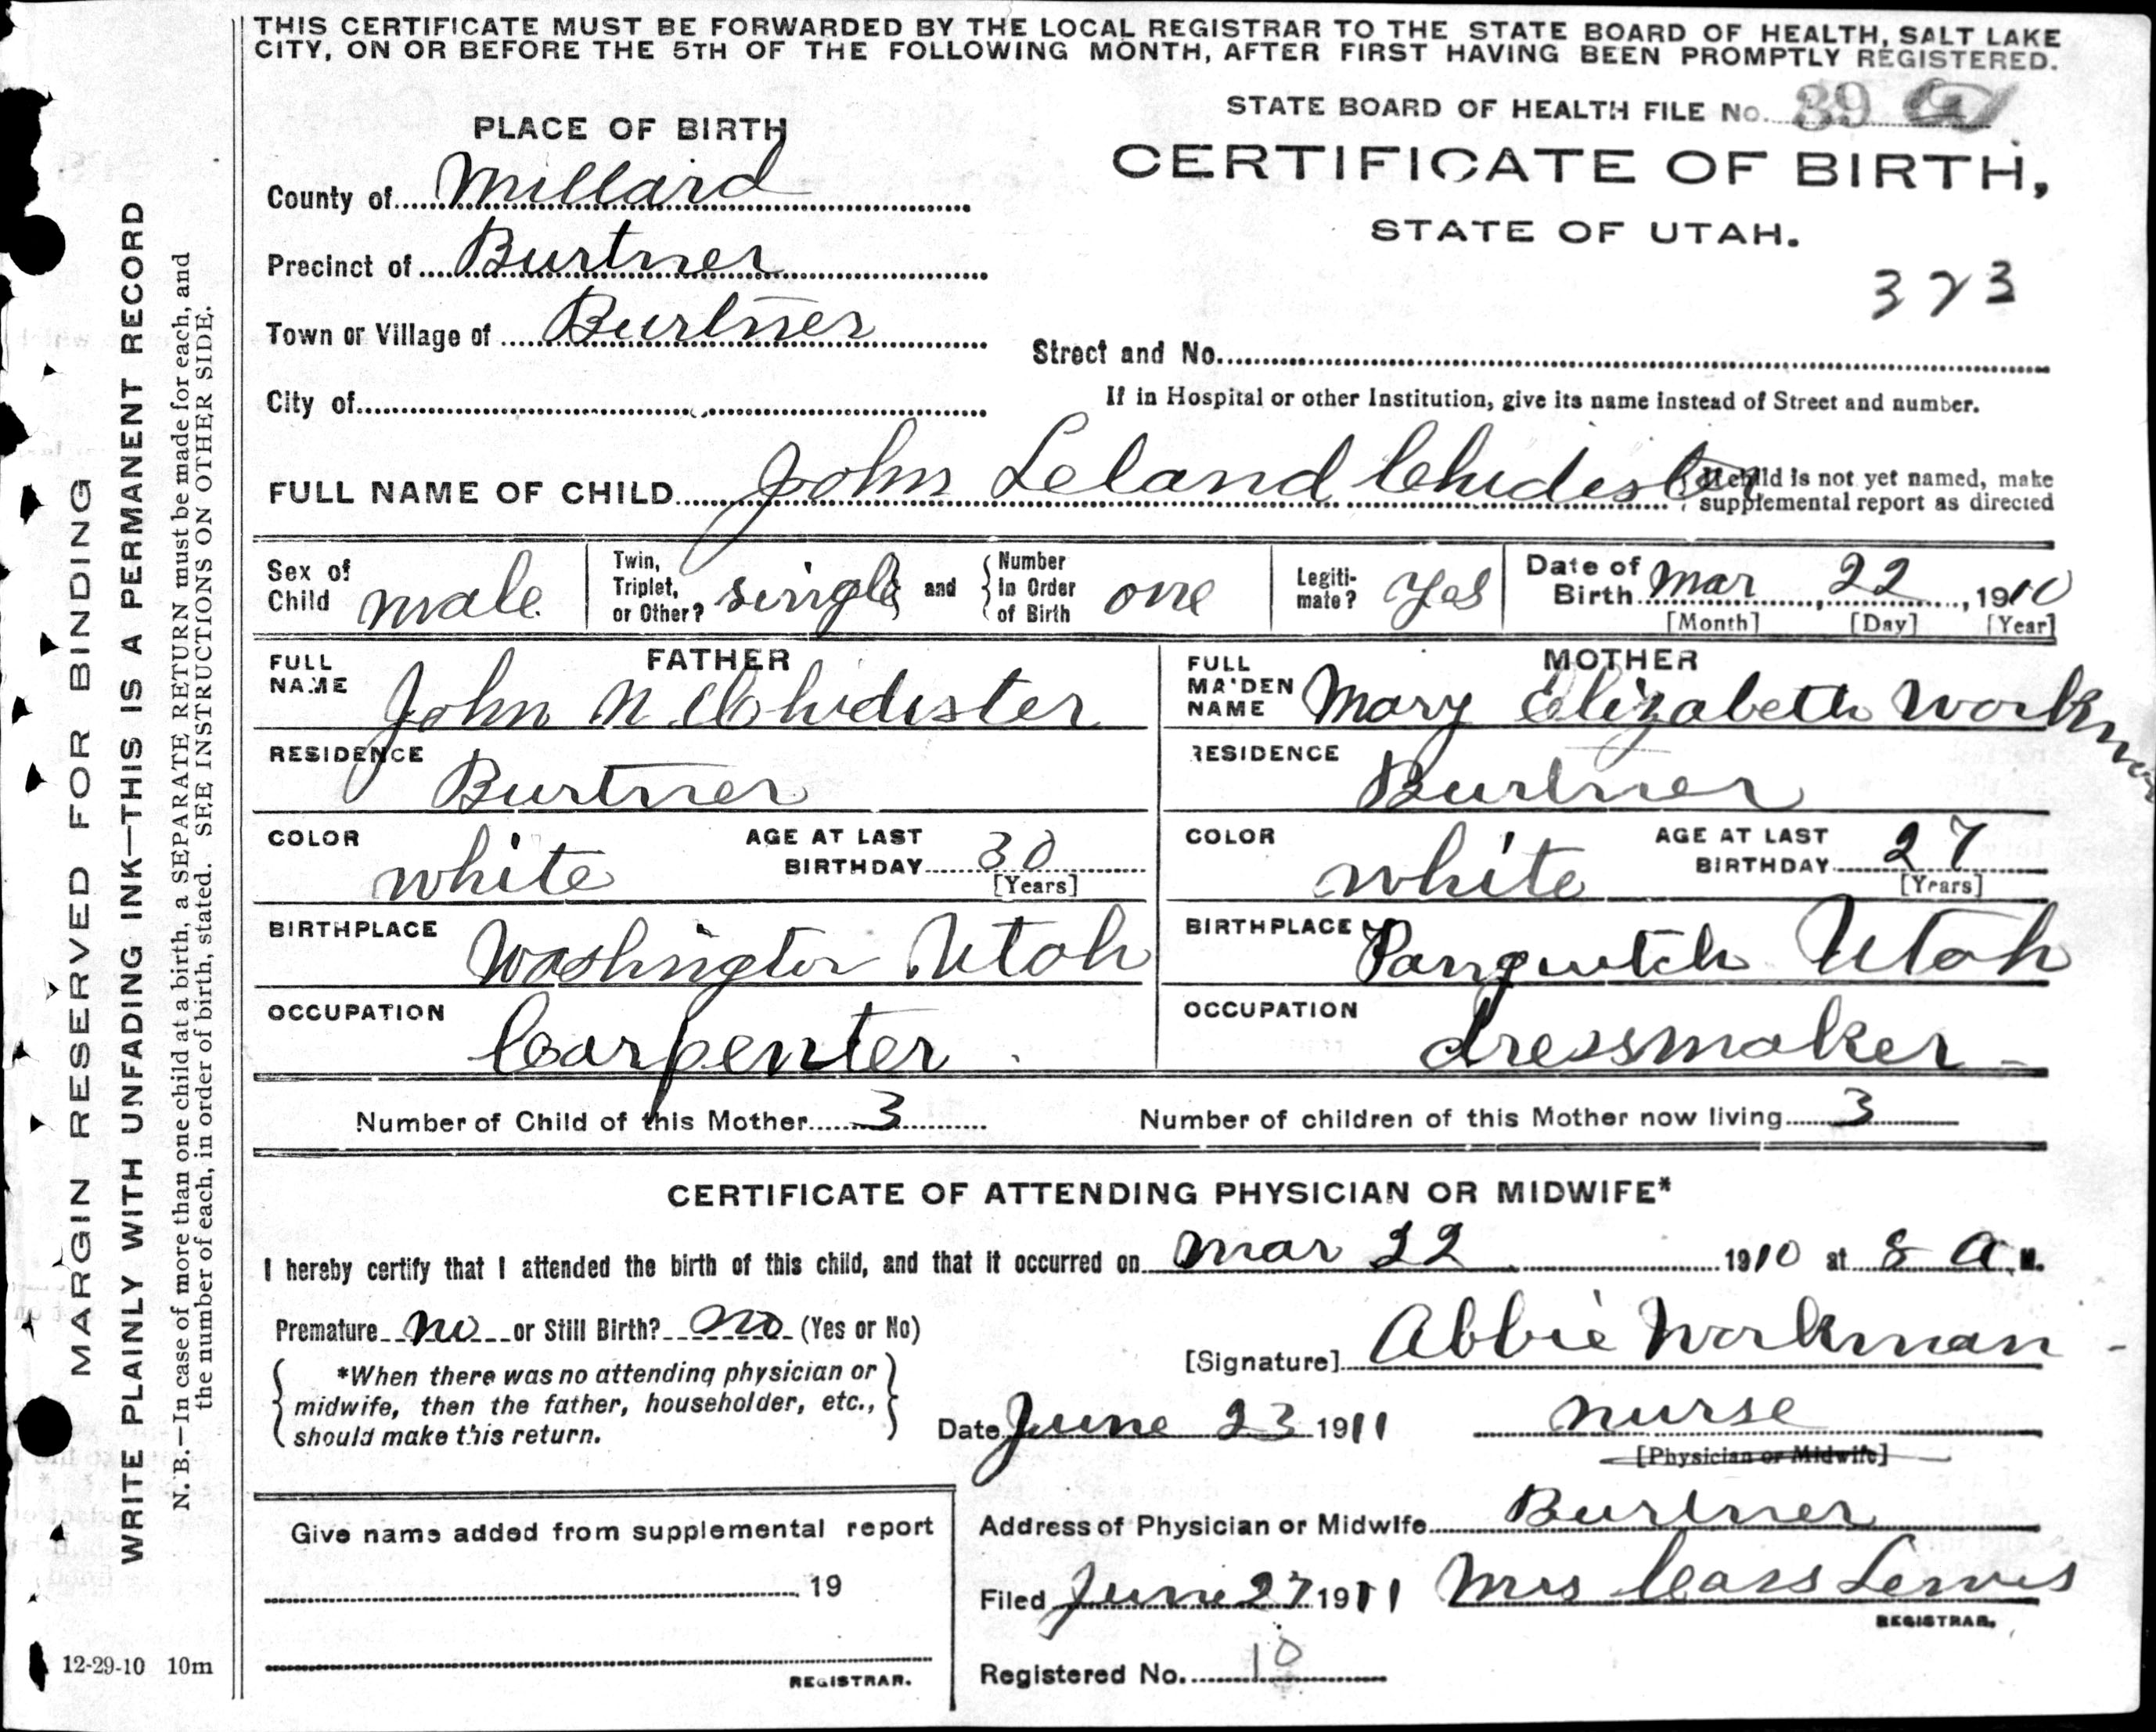 THIS CERTIFICATE MUST BE FORWARDED BY THE LOCAL REGISTRAR TO THE STATE BOARD OF HEALTH, SALT LAKE
CITY, ON OR BEFORE THE 5TH OF THE FOLLOWING MONTH, AFTER FIRST HAVING BEEN PROMPTLY REGISTERED.
STATE BOARD OF HEALTH FILE No. 39
PLACE OF BIRTH
CERTIFICATE OF BIRTH,
County of Millard
STATE OF UTAH.
Precinct of Burtner
323
Town or Village of Burtner
Street and No.
City of
If in Hospital or other Institution, give its name instead of Street and number.
FULL NAME OF CHILD John Leland Chidester
If child is not yet named, make
supplemental report as directed
Sex of Child male
Twin, Triplet, or Other? single and Number In Order of Birth one
Legitimate? yes
Date of Birth Mar 22, 1910
[Month] [Day] [Year]
FATHER
FULL NAME John N. Chidester
RESIDENCE Burtner
COLOR white AGE AT LAST BIRTHDAY 30
[Years]
BIRTHPLACE Washington Utah
OCCUPATION Carpenter
MOTHER
FULL MAIDEN NAME Mary Elizabeth Workman
RESIDENCE Burtner
COLOR white AGE AT LAST BIRTHDAY 27
[Years]
BIRTHPLACE Panguitch Utah
OCCUPATION dressmaker
Number of Child of this Mother 3 Number of children of this Mother now living 3
CERTIFICATE OF ATTENDING PHYSICIAN OR MIDWIFE*
I hereby certify that I attended the birth of this child, and that it occurred on Mar 22 1910 at 8 a. M.
Premature no or Still Birth? no (Yes or No)
[Signature] Abbie Workman
*When there was no attending physician or
midwife, then the father, householder, etc.,
should make this return.
Date June 23 1911 nurse
[Physician or Midwife]
Address of Physician or Midwife Burtner
Filed June 27 1911 Mrs Cass Lewis
REGISTRAR.
Registered No. 10
Give name added from supplemental report
19
REGISTRAR.
MARGIN RESERVED FOR BINDING
WRITE PLAINLY WITH UNFADING INK—THIS IS A PERMANENT RECORD
N. B.—In case of more than one child at a birth, a SEPARATE RETURN must be made for each, and
the number of each, in order of birth, stated. SEE INSTRUCTIONS ON OTHER SIDE.
12-29-10 10m